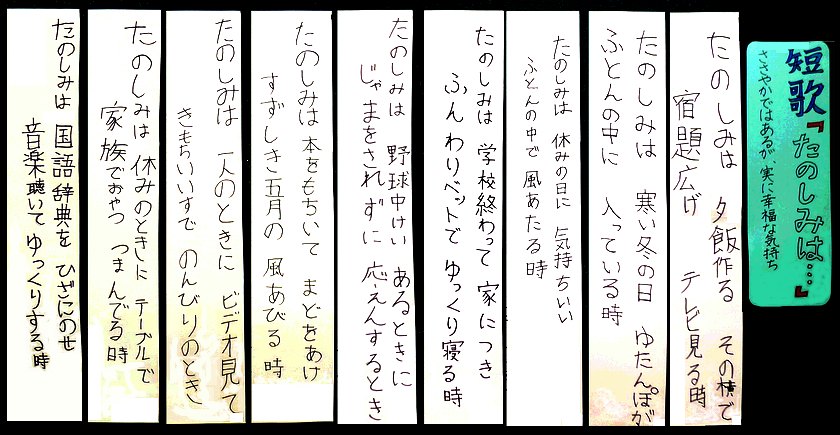 短歌『たのしみは…』
ささやかではあるが、実に幸福な気持ち
たのしみは 夕飯作る その横で
宿題広げ テレビ見る時
たのしみは 寒い冬の日 ゆたんぽが
ふとんの中に 入っている時
たのしみは 休みの日に 気持ちいい
ふとんの中で 風あたる時
たのしみは 学校終わって 家につき
ふんわりベットで ゆっくり寝る時
たのしみは 野球中けい あるときに
じゃまをされずに 応えんするとき
たのしみは 本をもちいて まどをあけ
すずしき五月の 風あびる時
たのしみは 一人のときに ビデオ見て
きもちいいすで のんびりのとき
たのしみは 休みのときに テーブルで
家族でおやつ つまんでる時
たのしみは 国語辞典を ひざにのせ
音楽聴いて ゆっくりする時